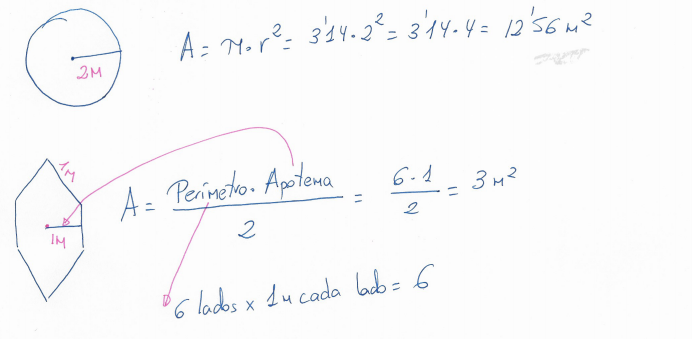 A = π · r² = 3'14 · 2² = 3'14 · 4 = 12'56 m²
2M
1M
A = Perímetro · Apotema / 2 = 6 · 1 / 2 = 3 m²
1M
6 lados x 1m cada lado = 6